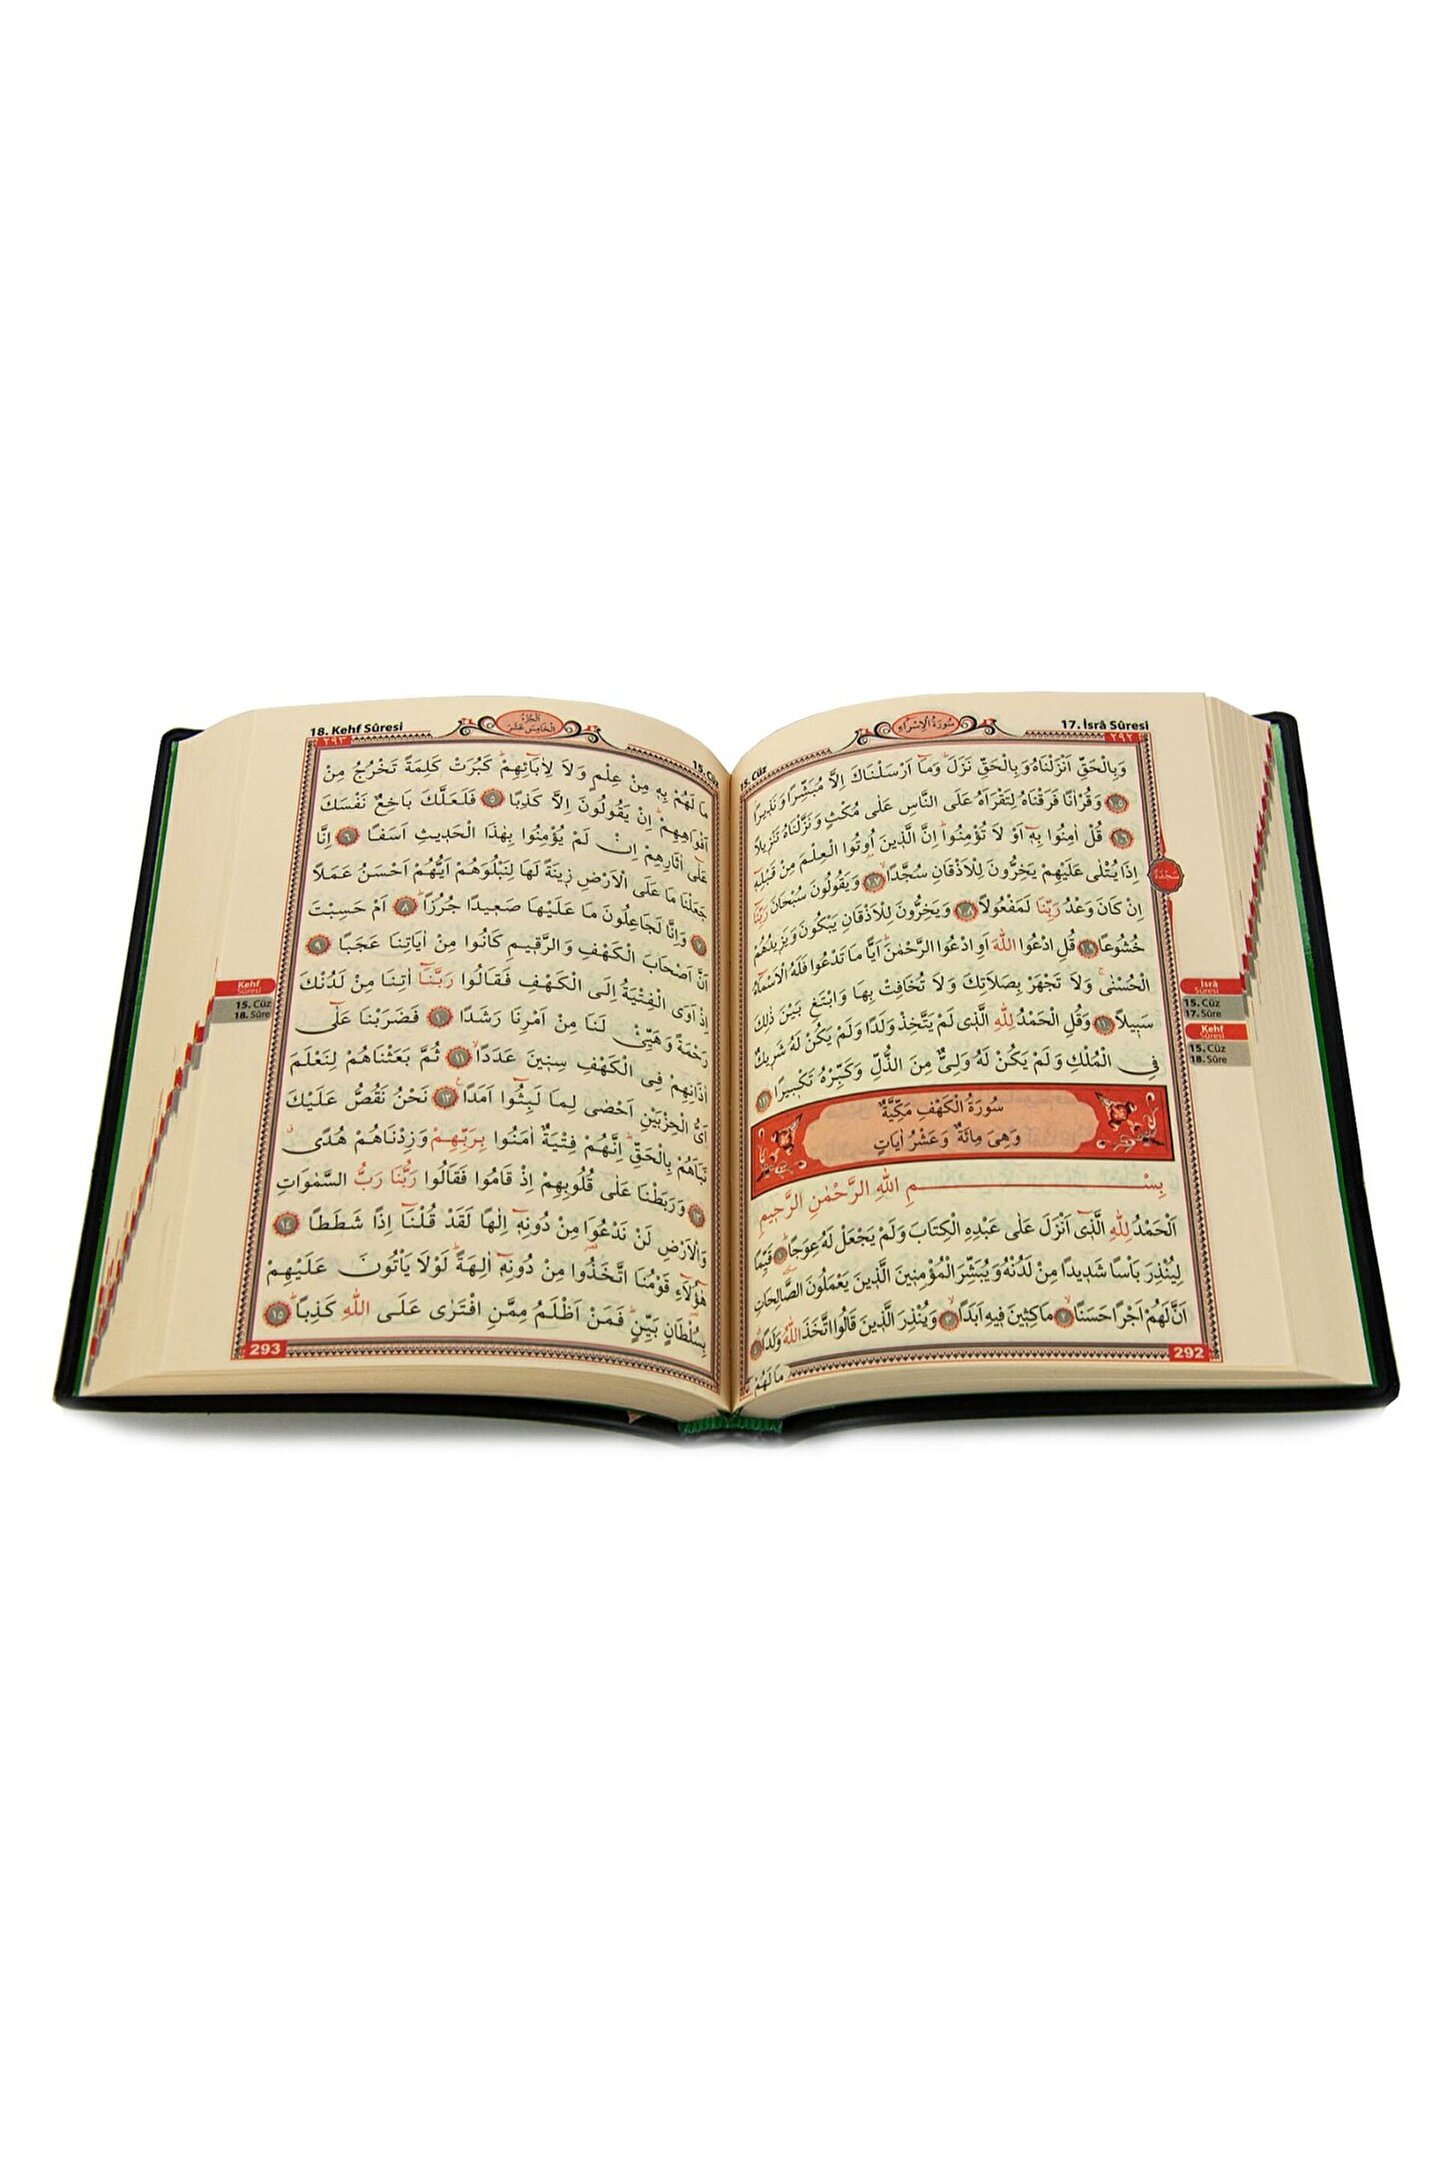 17. İsrâ Sûresi
سُورَةُ الْاِسْرَاءِ
15. Cüz
٢٩٢
وَبِالْحَقِّ اَنْزَلْنَاهُ وَبِالْحَقِّ نَزَلَۜ وَمَٓا اَرْسَلْنَاكَ اِلَّا مُبَشِّرًا وَنَذِيرًاۢ
﴿١٠٥﴾ وَقُرْاٰنًا فَرَقْنَاهُ لِتَقْرَاَهُ عَلَى النَّاسِ عَلٰى مُكْثٍ وَنَزَّلْنَاهُ تَنْزِيلًا
﴿١٠٦﴾ قُلْ اٰمِنُوا بِهٖٓ اَوْ لَا تُؤْمِنُواۜ اِنَّ الَّذِينَ اُوتُوا الْعِلْمَ مِنْ قَبْلِهٖٓ
اِذَا يُتْلٰى عَلَيْهِمْ يَخِرُّونَ لِلْاَذْقَانِ سُجَّدًاۙ ﴿١٠٧﴾ وَيَقُولُونَ سُبْحَانَ رَبِّنَٓا
سَجْدَة
اِنْ كَانَ وَعْدُ رَبِّنَا لَمَفْعُولًا ﴿١٠٨﴾ وَيَخِرُّونَ لِلْاَذْقَانِ يَبْكُونَ وَيَزِيدُهُمْ
خُشُوعًا ﴿١٠٩﴾ قُلِ ادْعُوا اللّٰهَ اَوِ ادْعُوا الرَّحْمٰنَۜ اَيًّا مَا تَدْعُوا فَلَهُ الْاَسْمَٓاءُ
الْحُسْنٰىۚ وَلَا تَجْهَرْ بِصَلَاتِكَ وَلَا تُخَافِتْ بِهَا وَابْتَغِ بَيْنَ ذٰلِكَ
سَبِيلًا ﴿١١٠﴾ وَقُلِ الْحَمْدُ لِلّٰهِ الَّذِى لَمْ يَتَّخِذْ وَلَدًا وَلَمْ يَكُنْ لَهُ شَرِيكٌ
فِى الْمُلْكِ وَلَمْ يَكُنْ لَهُ وَلِىٌّ مِنَ الذُّلِّ وَكَبِّرْهُ تَكْبِيرًا ﴿١١١﴾
سُورَةُ الْكَهْفِ مَكِّيَّةٌ
وَهِىَ مِائَةٌ وَعَشْرُ اٰيَاتٍ
بِسْمِ اللّٰهِ الرَّحْمٰنِ الرَّحِيمِ
اَلْحَمْدُ لِلّٰهِ الَّذِٓى اَنْزَلَ عَلٰى عَبْدِهِ الْكِتَابَ وَلَمْ يَجْعَلْ لَهُ عِوَجًاۜ ﴿١﴾ قَيِّمًا
لِيُنْذِرَ بَاْسًا شَدِيدًا مِنْ لَدُنْهُ وَيُبَشِّرَ الْمُؤْمِنِينَ الَّذِينَ يَعْمَلُونَ الصَّالِحَاتِ
اَنَّ لَهُمْ اَجْرًا حَسَنًاۙ ﴿٢﴾ مَاكِثِينَ فِيهِ اَبَدًاۙ ﴿٣﴾ وَيُنْذِرَ الَّذِينَ قَالُوا اتَّخَذَ اللّٰهُ وَلَدًاۗ ﴿٤﴾
مَا لَهُمْ
292
İsrâ
Sûresi
15. Cüz
17. Sûre
Kehf
Sûresi
15. Cüz
18. Sûre
18. Kehf Sûresi
اَلْجُزْءُ
الْخَامِسَ عَشَرَ
15. Cüz
٢٩٣
مَا لَهُمْ بِهٖ مِنْ عِلْمٍ وَلَا لِاٰبَٓائِهِمْۜ كَبُرَتْ كَلِمَةً تَخْرُجُ مِنْ
اَفْوَاهِهِمْۜ اِنْ يَقُولُونَ اِلَّا كَذِبًا ﴿٥﴾ فَلَعَلَّكَ بَاخِعٌ نَفْسَكَ
عَلٰٓى اٰثَارِهِمْ اِنْ لَمْ يُؤْمِنُوا بِهٰذَا الْحَدِيثِ اَسَفًا ﴿٦﴾ اِنَّا
جَعَلْنَا مَا عَلَى الْاَرْضِ زِينَةً لَهَا لِنَبْلُوَهُمْ اَيُّهُمْ اَحْسَنُ عَمَلًا
﴿٧﴾ وَاِنَّا لَجَاعِلُونَ مَا عَلَيْهَا صَعِيدًا جُرُزًاۜ ﴿٨﴾ اَمْ حَسِبْتَ
اَنَّ اَصْحَابَ الْكَهْفِ وَالرَّقِيمِ كَانُوا مِنْ اٰيَاتِنَا عَجَبًا ﴿٩﴾
اِذْ اَوَى الْفِتْيَةُ اِلَى الْكَهْفِ فَقَالُوا رَبَّنَٓا اٰتِنَا مِنْ لَدُنْكَ
رَحْمَةً وَهَيِّئْ لَنَا مِنْ اَمْرِنَا رَشَدًا ﴿١٠﴾ فَضَرَبْنَا عَلٰٓى
اٰذَانِهِمْ فِى الْكَهْفِ سِنِينَ عَدَدًاۙ ﴿١١﴾ ثُمَّ بَعَثْنَاهُمْ لِنَعْلَمَ
اَىُّ الْحِزْبَيْنِ اَحْصٰى لِمَا لَبِثُٓوا اَمَدًا۟ ﴿١٢﴾ نَحْنُ نَقُصُّ عَلَيْكَ
نَبَاَهُمْ بِالْحَقِّۜ اِنَّهُمْ فِتْيَةٌ اٰمَنُوا بِرَبِّهِمْ وَزِدْنَاهُمْ هُدًىۗ
﴿١٣﴾ وَرَبَطْنَا عَلٰى قُلُوبِهِمْ اِذْ قَامُوا فَقَالُوا رَبُّنَا رَبُّ السَّمٰوَاتِ
وَالْاَرْضِ لَنْ نَدْعُوَا مِنْ دُونِهٖٓ اِلٰهًا لَقَدْ قُلْنَٓا اِذًا شَطَطًا ﴿١٤﴾
هٰٓؤُ۬لَٓاءِ قَوْمُنَا اتَّخَذُوا مِنْ دُونِهٖٓ اٰلِهَةًۜ لَوْلَا يَاْتُونَ عَلَيْهِمْ
بِسُلْطَانٍ بَيِّنٍۜ فَمَنْ اَظْلَمُ مِمَّنِ افْتَرٰى عَلَى اللّٰهِ كَذِبًاۜ ﴿١٥﴾
293
Kehf
Sûresi
15. Cüz
18. Sûre